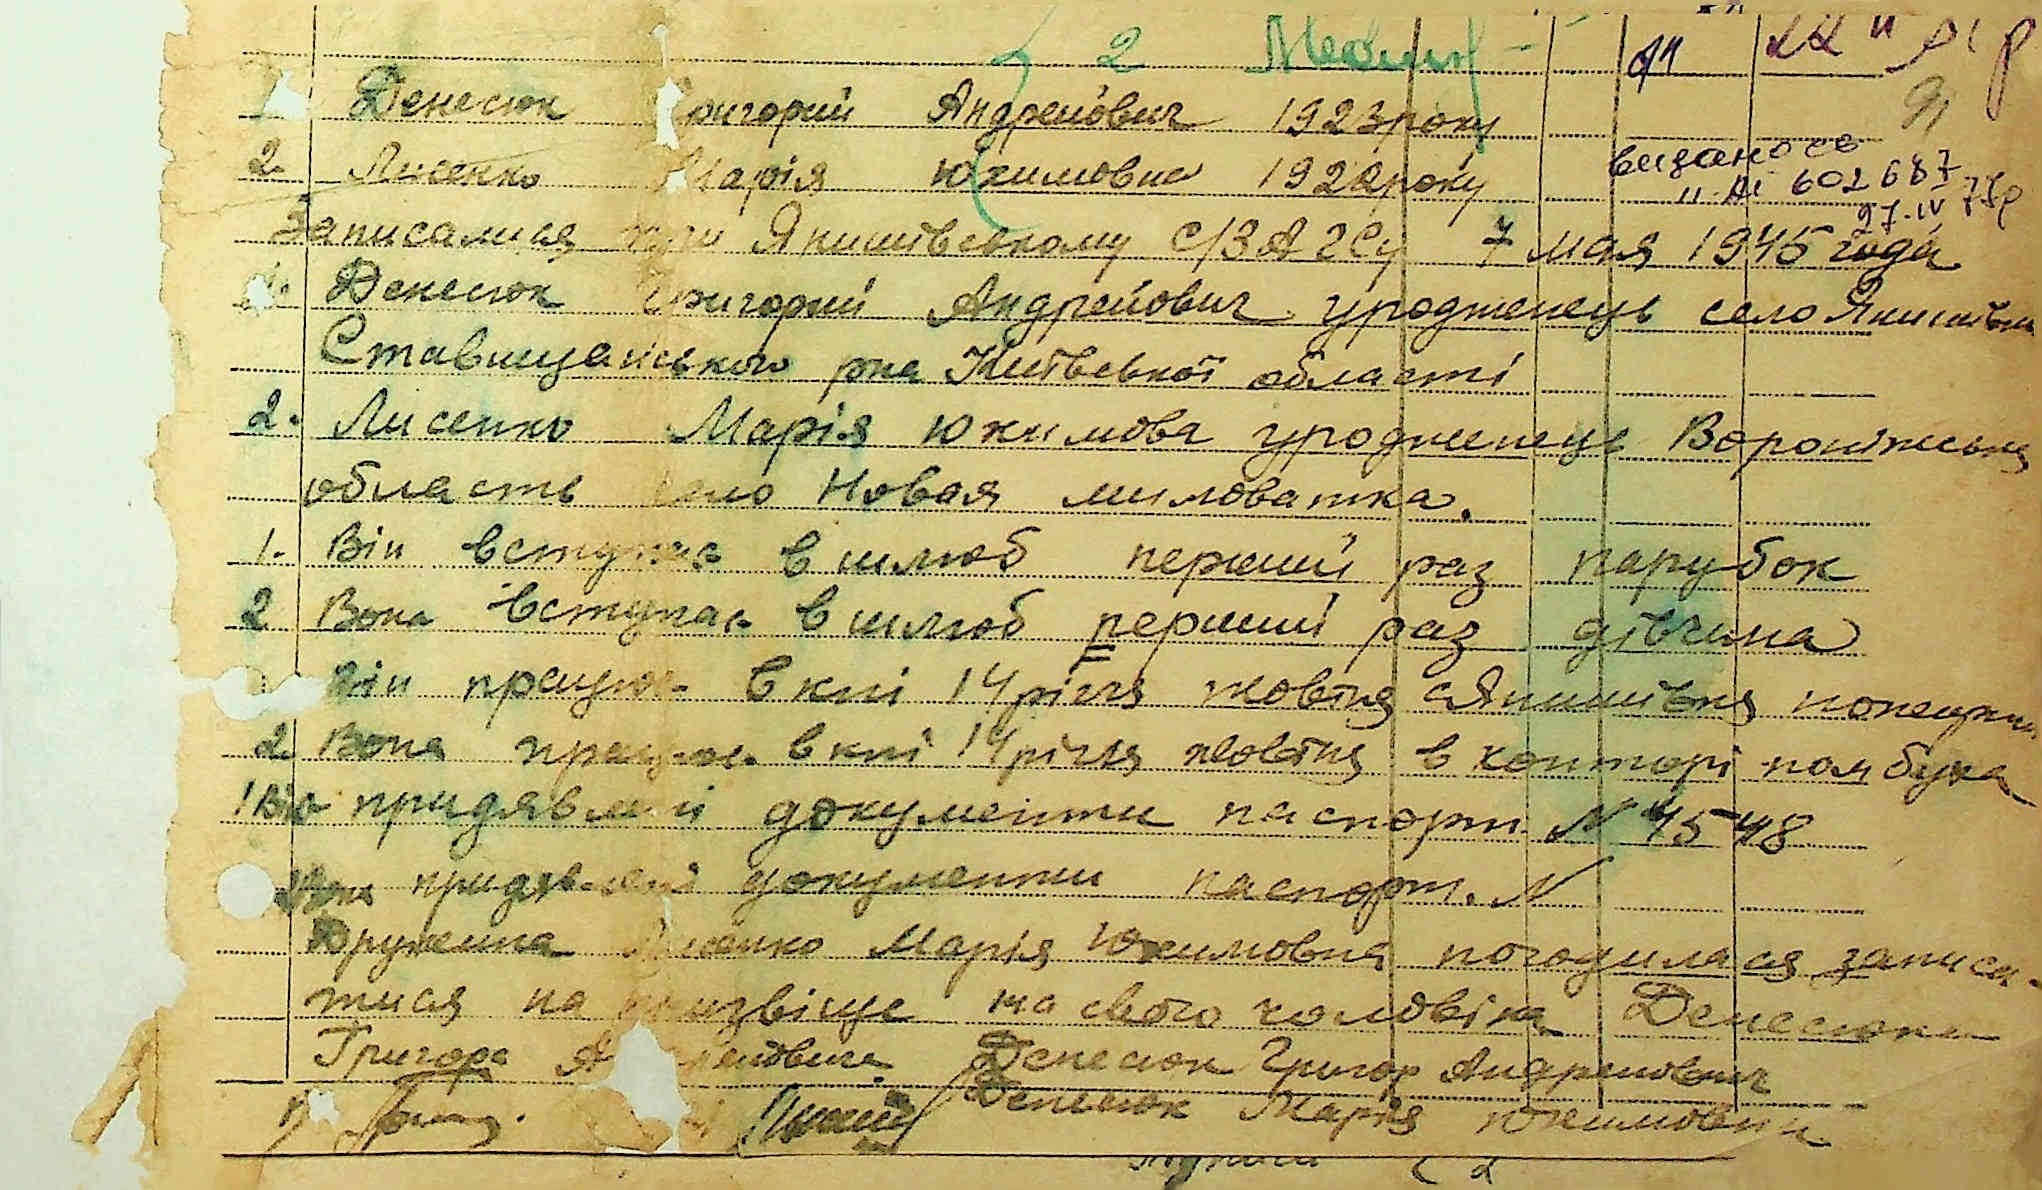 2
1. Денесюк Григорий Андрейович 1923 року
2. Лисенко Марія Юхимовна 1920 року
видано св
II-АІ 602687
27-IV 75р
Записалися при Янишівському С/ЗАГСу 7 мая 1945 года
1. Денесюк Григорий Андрейович уродженець село Янишівка
Ставищанського р-на Київської області
2. Лисенко Марія Юхимовна уродженець Воронижська
область село Новая миловатка.
1. Він вступає в шлюб перший раз парубок
2 Вона вступає в шлюб перший раз дівчина
Він працює в кпі 14 річчя жовтня с Янишівка
2. Вона працює в кпі 14 річчя жовтня в конторі пом буха
1 Він придявлені документи паспорт N 4548
Вона придявлені документи паспорт. N
Дружина Лисенко Марія Юхимовна погодилася записа-
тися на призвіще на свого чоловіка Денесюка
Григора Андрейовича Денесюк Григор Андрейович
Денесюк Марія Юхимовна